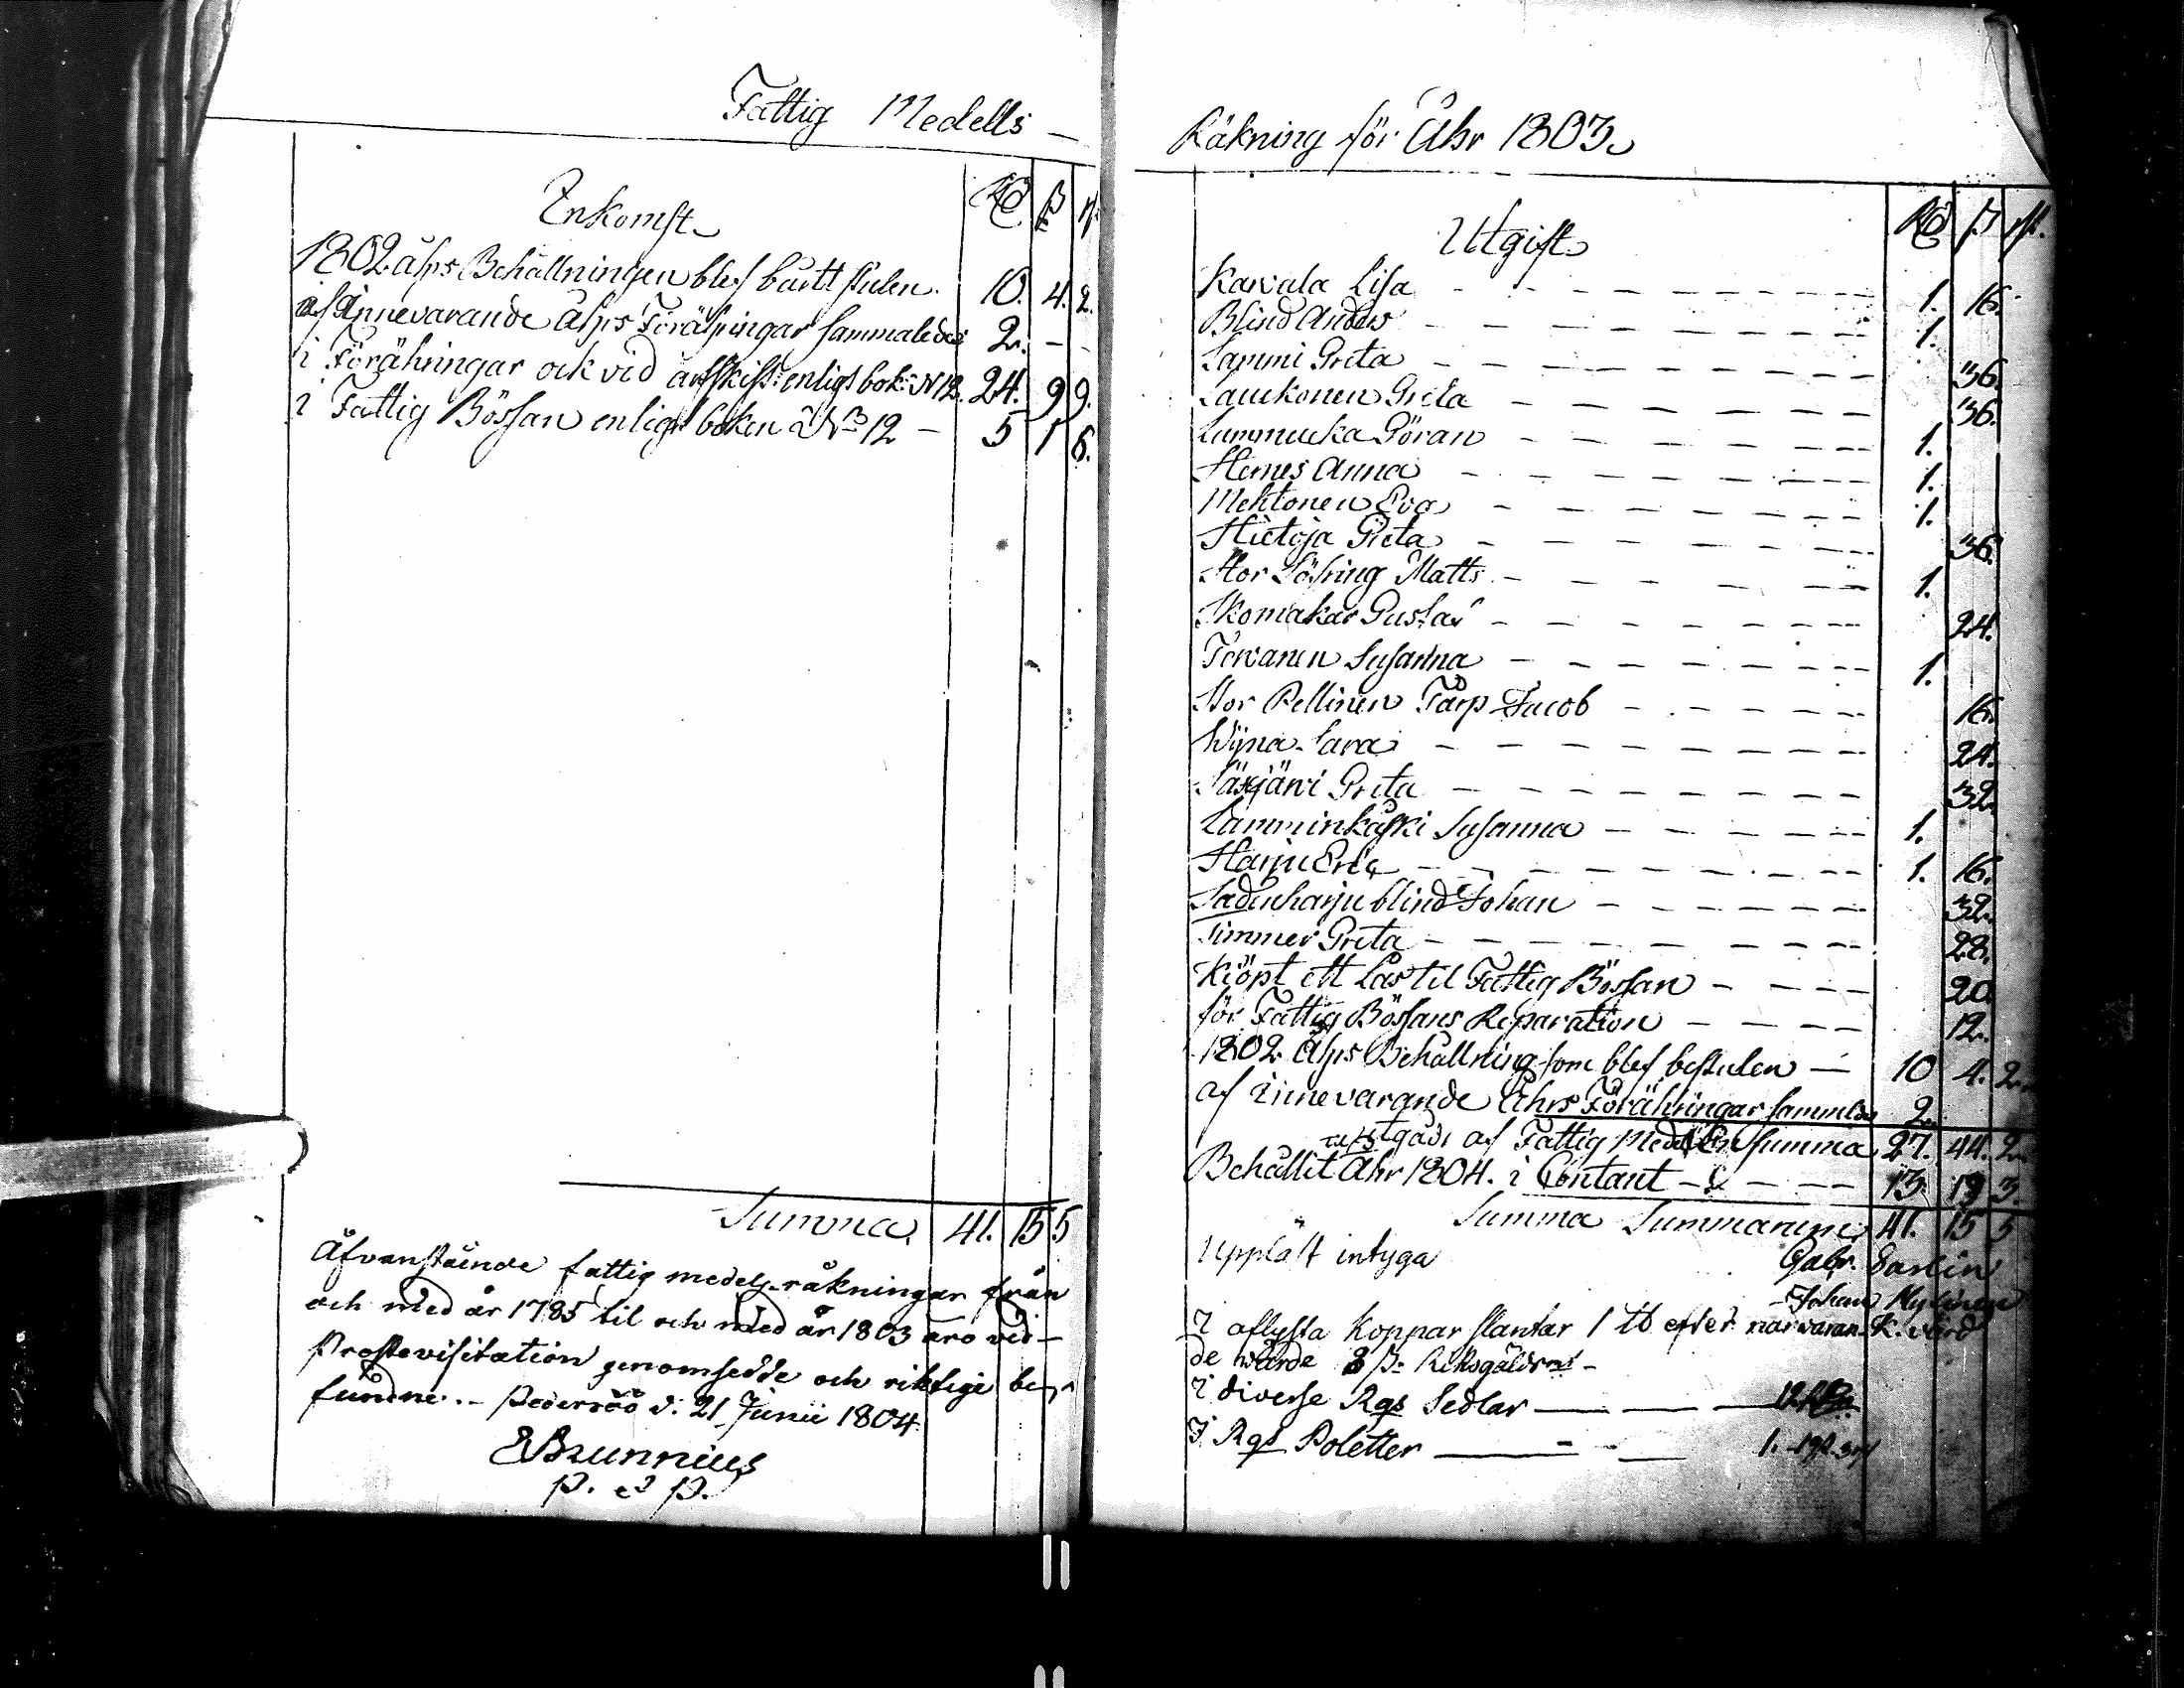 Fattig Medells
Enkomst Rd ß rst.
1802 åhrs Behållningen blef burtt stulen. 10. 4. 2.
af Innevarande Åhrs Föräringar sammaledes 2. - -
i Förähringar ock vid arfskift: enligt bok: N 12. 24. 9 9.
i Fattig Bössan enligt boken N:o 12 - 5 1 6.
Summa 41. 15 5
Åfvanstående fattig medels-räkningar från
och med år 1785 til och med år 1803 äro vid
Prostevisitation genomsedde och riktige be-
fundne. - Pedersöö d. 21 Junii 1804
EBrunnius
P. et P.
Räkning för Åhr 1803.
Utgift Rd ß rst.
Karvala Lisa - - - 1. 16.
Blind Anders - - - 1.
Lammi Greta - - - 36.
Laukonen Greta - - - 36.
Lummucka Göran - - - 1.
Hernes Anna - - - 1.
Mehtonen Eva - - - 1.
Hietoja Greta - - - 36.
Stor Löfring Matts - - - 1.
Skomakar Gustaf - - - 24.
Torvanen Susanna - - - 1.
Stor Pellinen Tårp Jacob - - - 16.
Wijna Sara - - - 24.
Säxjärvi Greta - - - 32.
Lamminkåski Susanna - - - 1.
Harju Eric - - - 1. 16.
Sadenharju blind Johan - - - 32.
Timmer Greta - - - 28.
Kiöpt ett Lås til Fattig Bössan - - - 20.
för Fattig Bössans Reparation - - - 12.
1802 Åhrs Behållning som blef bestulen - 10 4. 2.
af innevarande Åhrs Förähringar 2.
utgådt af Fattig Medlen Summa 27. 44. 2.
Behållit Åhr 1804. i Contant - - - 13. 19 3.
Summa Summarum 41. 15 5
Uppläst intyga Gabr.
Johan
K. värd
I aflysta Koppar slantar 1 lb efter närvaran-
de wärde 8 ß: Riksgälds
I diverse Rgs Sedlar
I Rgs Poletter 1. 19ß. 3rst